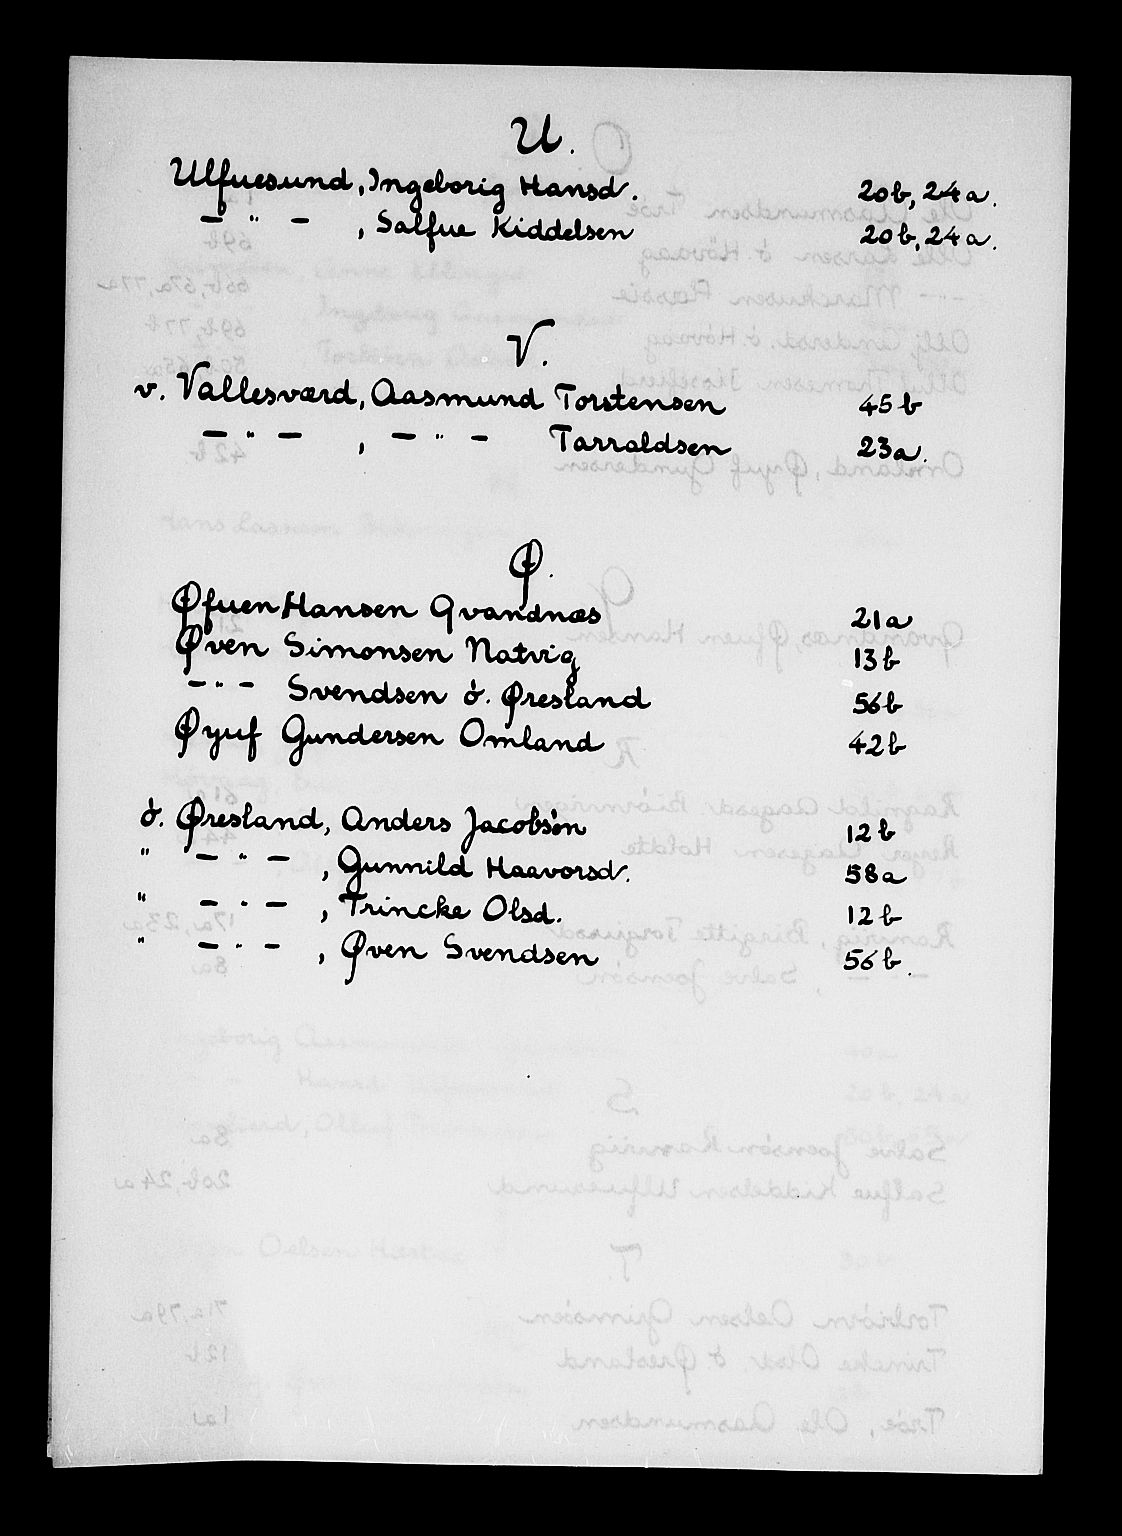 U.
Ulfuesund, Ingeborig Hansd. 20b, 24a.
— " — , Salfue Kiddelsen 20b, 24a.
V.
v. Vallesværd, Aasmund Torstensen 45b
— " — , — " — Tarraldsen 23a.
Ø.
Øfuen Hansen Qvandnæs 21a
Øven Simonsen Natvig 13b
— " — Svendsen ó. Øresland 56b
Øyuf Gundersen Omland 42b
ó. Øresland, Anders Jacobsøn 12b
" — " — , Gunnild Haavorsd. 58a
" — " — , Trincke Olsd. 12b
" — " — , Øven Svendsen 56b.